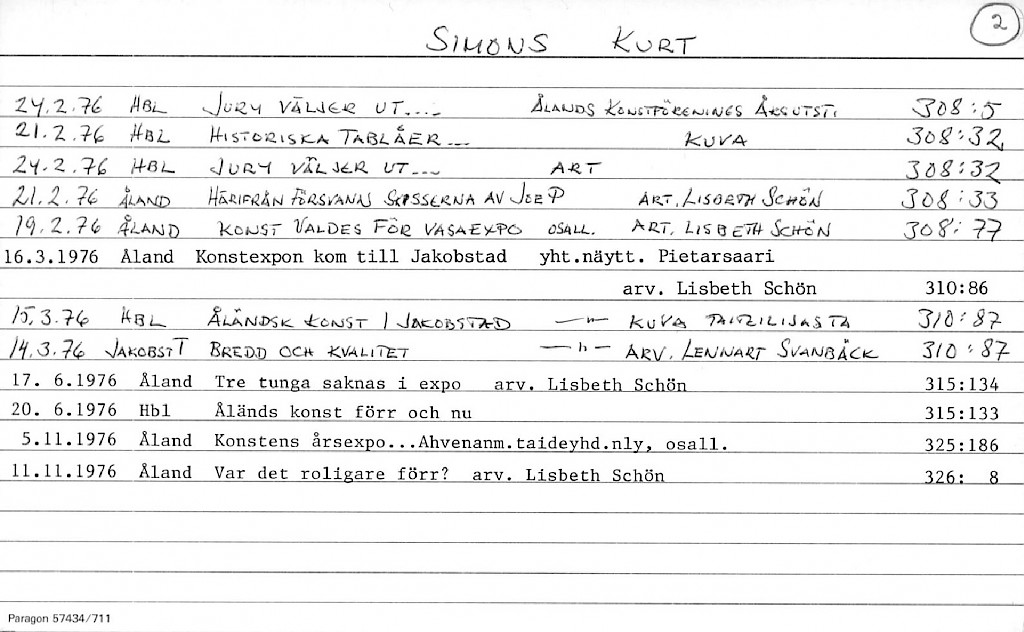 2
SIMONS KURT
24.2.76 HBL JURY VÄLJER UT.... ÅLANDS KONSTFÖRENINGS ÅRSUTST. 308:5
21.2.76 HBL HISTORISKA TABLÅER... KUVA 308:32
24.2.76 HBL JURY VÄLJER UT... ART 308:32
21.2.76 ÅLAND HÄRIFRÅN FÖRSVANN SKISSERNA AV JOEP ART. LISBETH SCHÖN 308:33
19.2.76 ÅLAND KONST VALDES FÖR VASAEXPO OSALL. ART. LISBETH SCHÖN 308:77
16.3.1976 Åland Konstexpon kom till Jakobstad yht.näytt. Pietarsaari
arv. Lisbeth Schön 310:86
15.3.76 HBL ÅLÄNDSK KONST I JAKOBSTAD —"— KUVA TAITEILIJASTA 310:87
14.3.76 JAKOBST T BREDD OCH KVALITET —"— ARV. LENNART SVANBÄCK 310:87
17. 6.1976 Åland Tre tunga saknas i expo arv. Lisbeth Schön 315:134
20. 6.1976 Hbl Åländs konst förr och nu 315:133
5.11.1976 Åland Konstens årsexpo...Ahvenanm.taideyhd.nly, osall. 325:186
11.11.1976 Åland Var det roligare förr? arv. Lisbeth Schön 326: 8
Paragon 57434/711